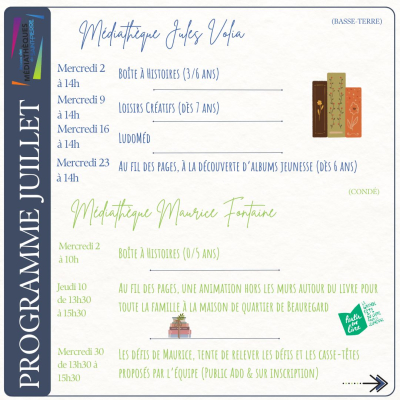 MÉDIATHÈQUES
PROGRAMME JUILLET
Médiathèque Jules Volia
(BASSE-TERRE)
Mercredi 2
à 14h
Boîte à Histoires (3/6 ans)
Mercredi 9
à 14h
Loisirs Créatifs (dès 7 ans)
Mercredi 16
à 14h
LudoMéd
Mercredi 23
à 14h
Au fil des pages, à la découverte d'albums jeunesse (dès 6 ans)
(CONDÉ)
Médiathèque Maurice Fontaine
Mercredi 2
à 10h
Boîte à Histoires (0/5 ans)
Jeudi 10
de 13h30
à 15h30
Au fil des pages, une animation hors les murs autour du livre pour
toute la famille à la maison de quartier de Beauregard
Partir
en
Livre
Mercredi 30
de 13h30 à
15h30
Les défis de Maurice, tente de relever les défis et les casse-têtes
proposés par l'équipe (Public Ado & sur inscription)